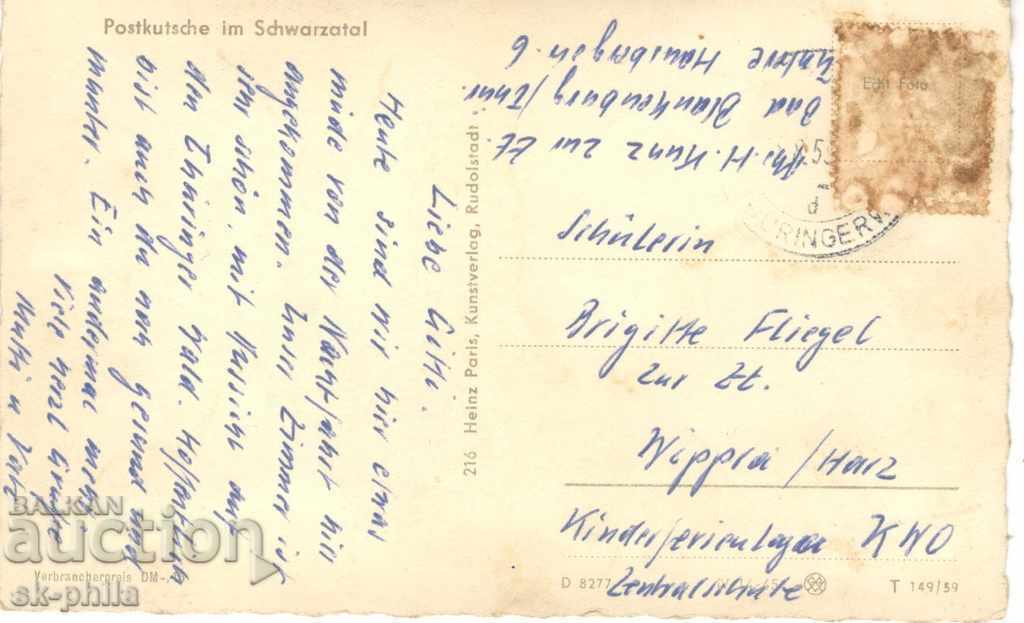 Postkutsche im Schwarzatal
Liebe Gitti.
Heute sind wir hier etwas
müde von der Nachtfahrt hier
angekommen. Unser Zimmer ist
sehr schön, mit Aussicht auf
den Thüringer Wald. Hoffentlich
bist auch du noch gesund und
munter. Ein andermal mehr.
Viele herzl. Grüße
Mutti u Vati
216 Heinz Paris, Kunstverlag, Rudolstadt
H. Kunz zur Zt
Bad Blankenburg/Thür
Untere Hausbergen 6
Echt Foto
Schülerin
Brigitte Fliegel
zur Zt.
Wippra / Harz
Kinderferienlager KWO
Zentralschule
Verbraucherpreis DM
D 8277
T 149/59
BALKAN
auction
sk-phila